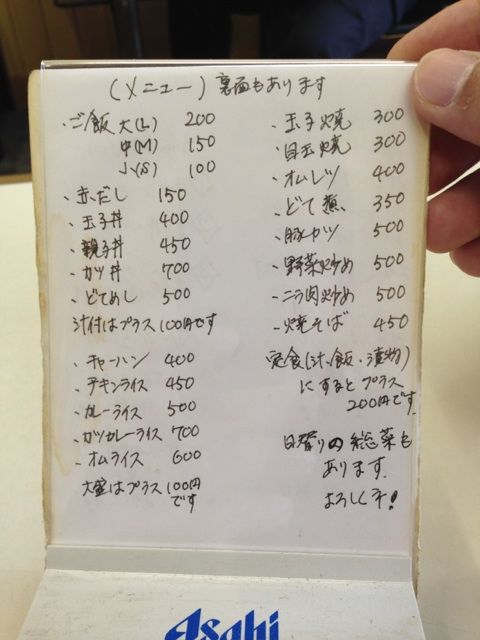 (メニュー) 裏面もあります
・ご飯 大(L) 200
中(M) 150
小(S) 100
・赤だし 150
・玉子丼 400
・親子丼 450
・カツ丼 700
・どてめし 500
汁付はプラス100円です
・チャーハン 400
・チキンライス 450
・カレーライス 500
・カツカレーライス 700
・オムライス 600
大盛はプラス100円
です
・玉子焼 300
・目玉焼 300
・オムレツ 400
・どて煮 350
・豚カツ 500
・野菜炒め 500
・ニラ肉炒め 500
・焼そば 450
定食(汁、飯、漬物)
にするとプラス
200円です
日替りの総菜も
あります
よろしく!
Asahi